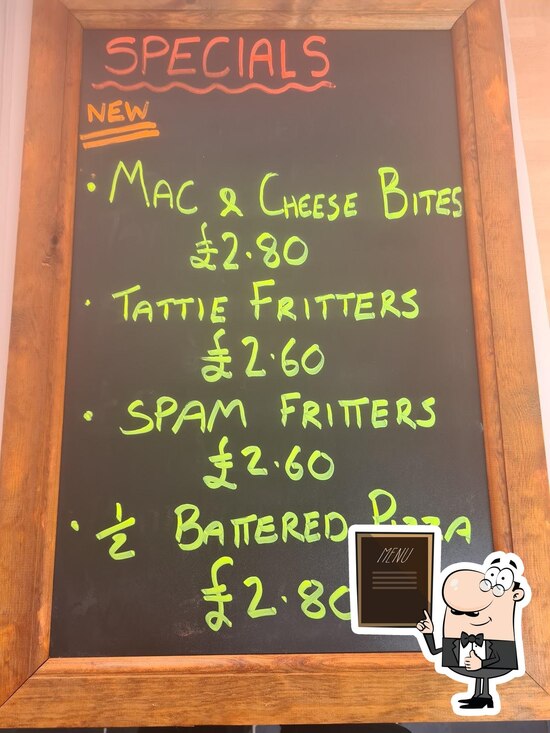 SPECIALS
NEW
• MAC & CHEESE BITES
£2.80
• TATTIE FRITTERS
£2.60
• SPAM FRITTERS
£2.60
• ½ BATTERED PIZZA
£2.80
MENU